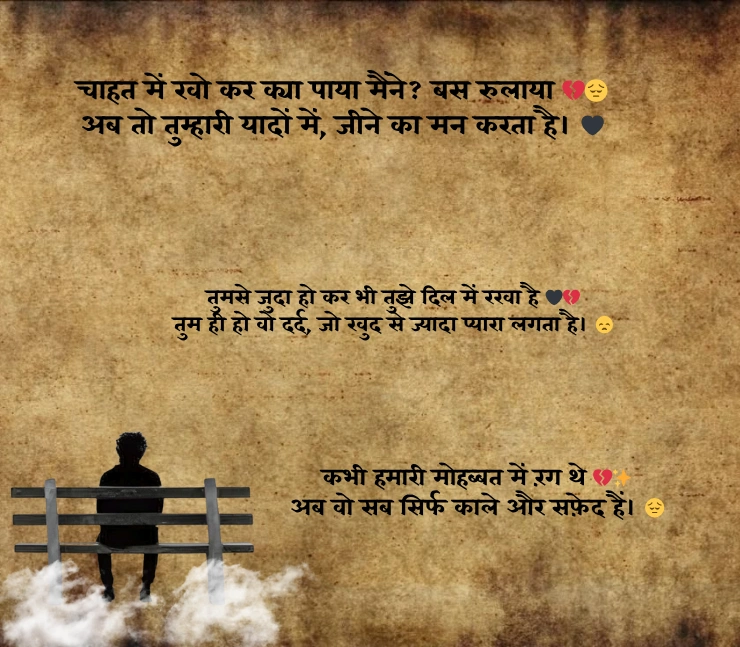 चाहत में खो कर क्या पाया मैंने? बस रुलाया 💔😔
अब तो तुम्हारी यादों में, जीने का मन करता है। 🖤
तुमसे जुदा हो कर भी तुझे दिल में रखा है 🖤💔
तुम ही हो वो दर्द, जो खुद से ज्यादा प्यारा लगता है। 😞
कभी हमारी मोहब्बत में रंग थे 💔✨
अब वो सब सिर्फ काले और सफ़ेद हैं। 😔